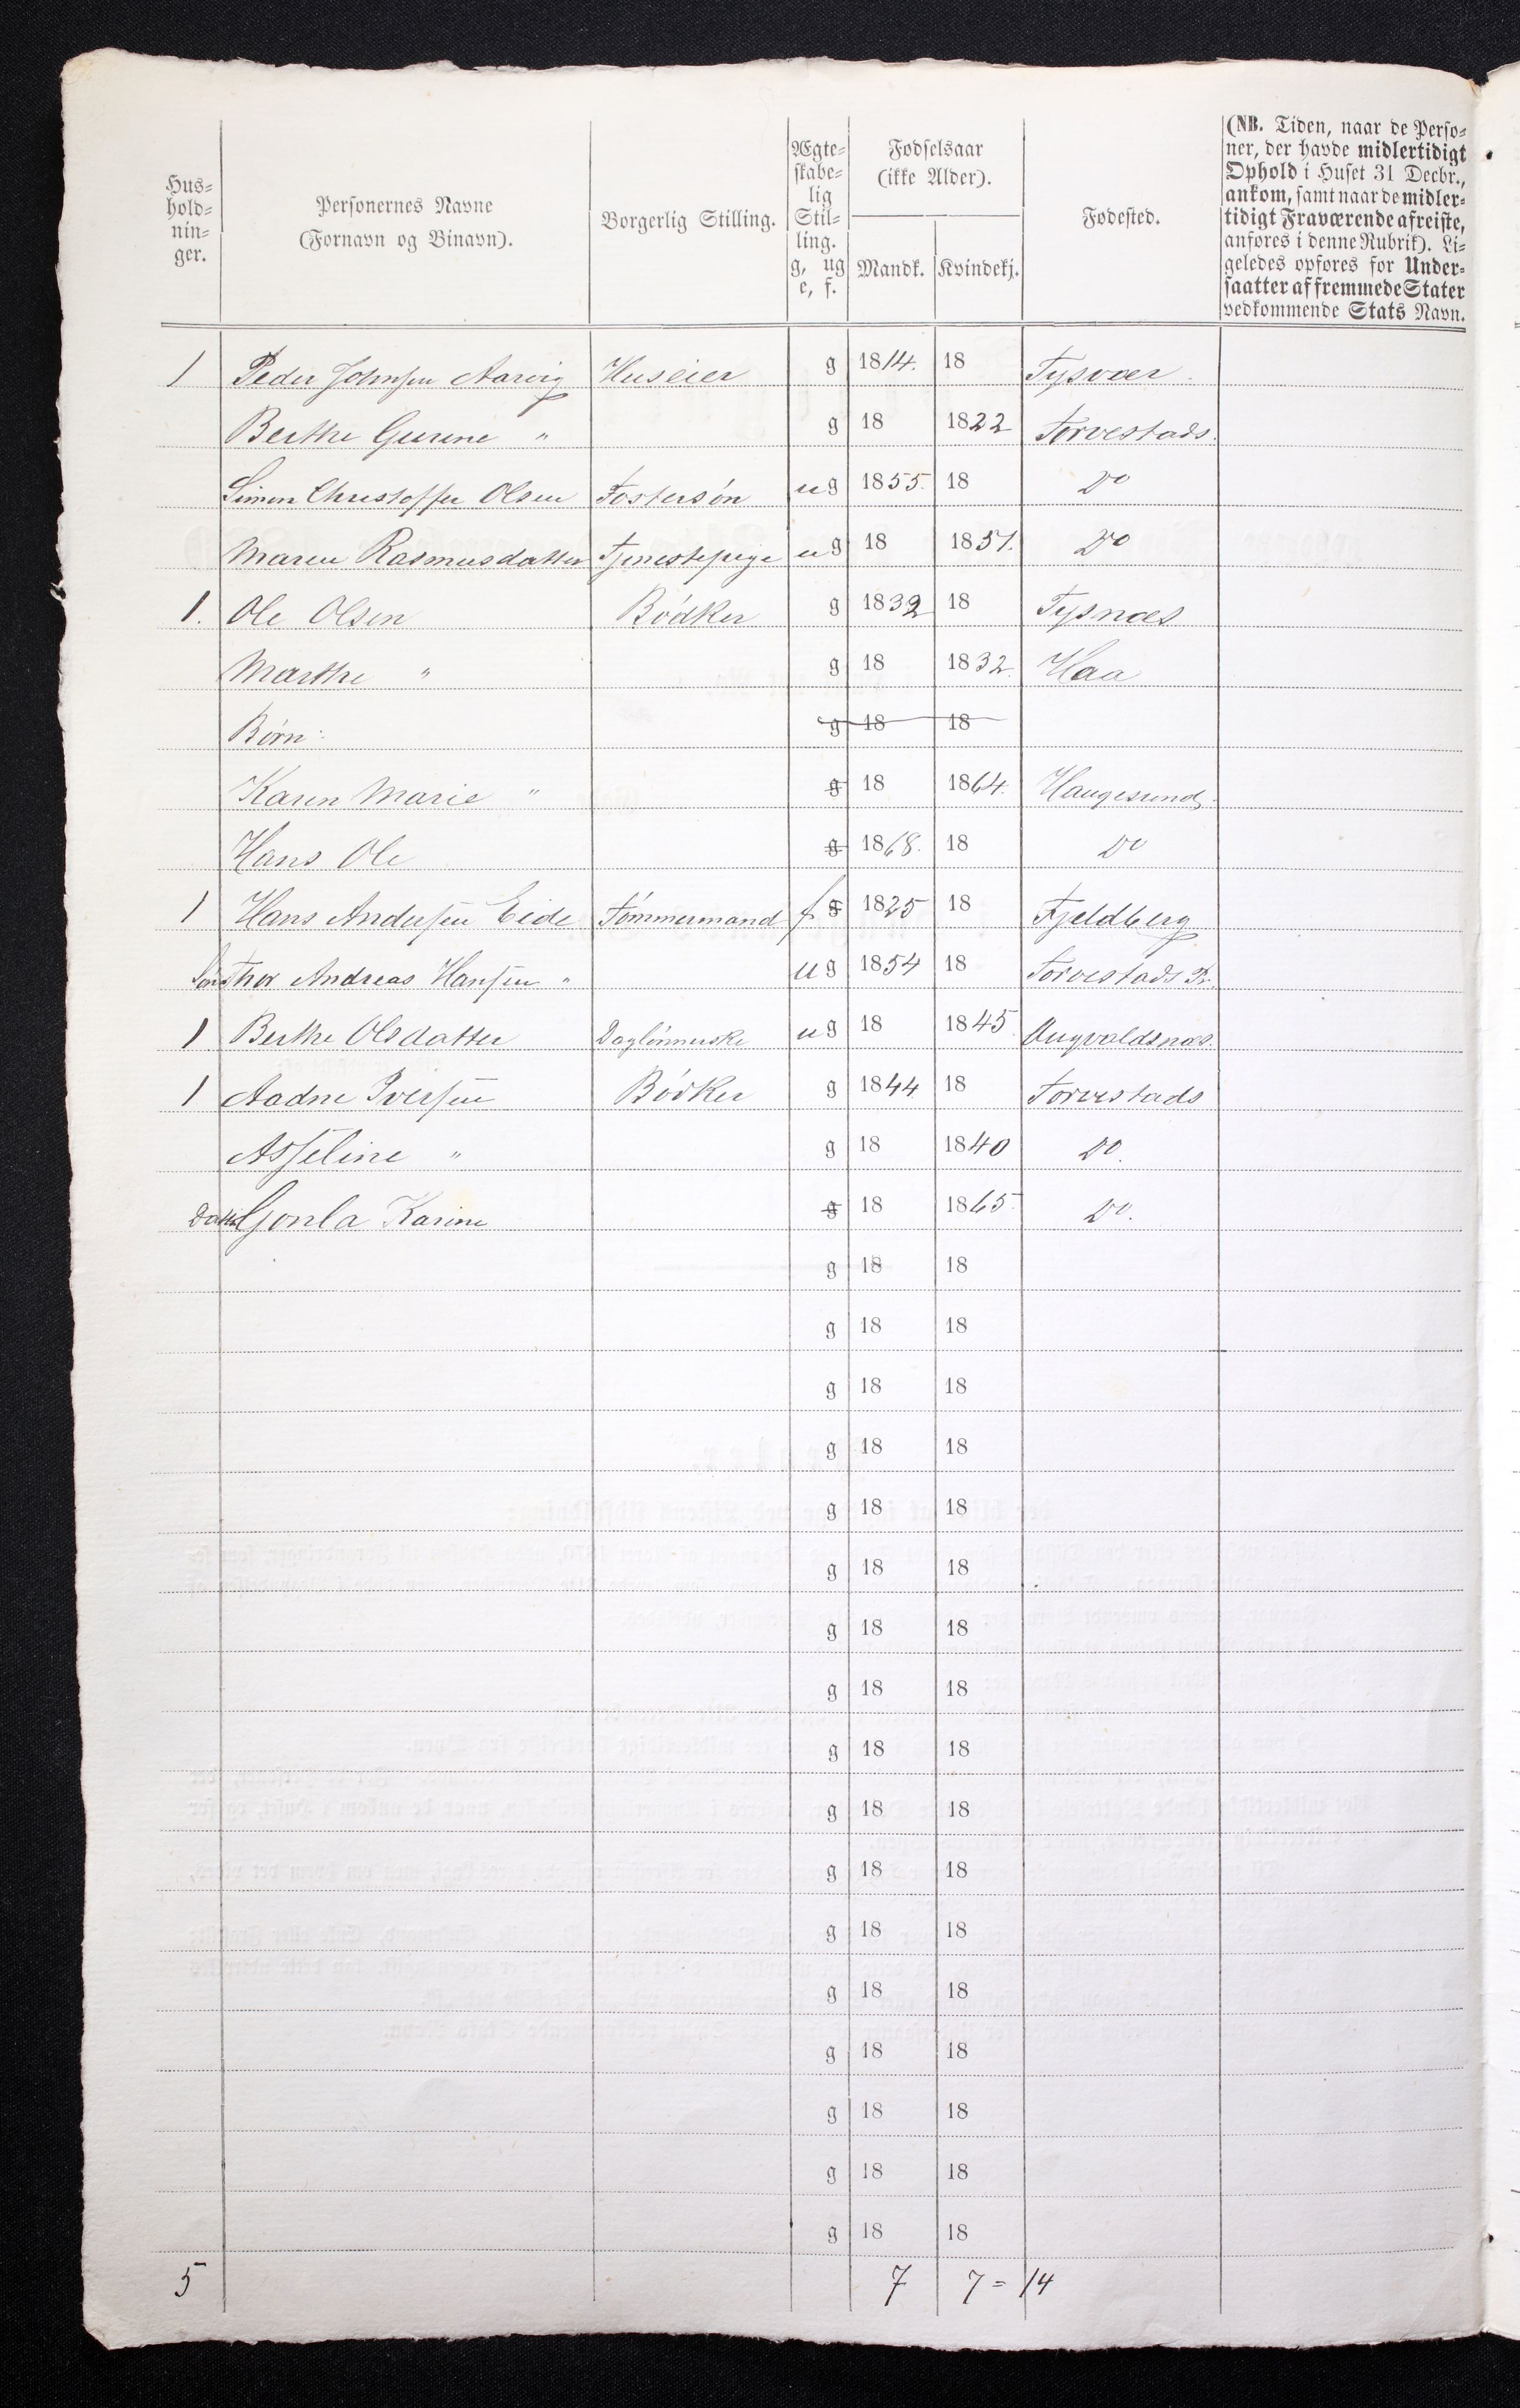 Hus=
hold=
nin=
ger.
Personernes Navne
(Fornavn og Binavn).
Borgerlig Stilling.
Ægte=
skabe=
lig
Stil=
ling.
g, ug
e, f.
Fødselsaar
(ikke Alder).
Mandk. Kvindekj.
Fødested.
(NB. Tiden, naar de Perso=
ner, der havde midlertidigt
Ophold i Huset 31 Decbr.,
ankom, samt naar de midler=
tidigt Fraværende afreiste,
anføres i denne Rubrik). Li=
geledes opføres for Under=
saatter af fremmede Stater
vedkommende Stats Navn.
1 Peder Johnsen Aarvig Huseier g 1814. 18 Tysvær.
Berthe Gurine " g 18 1822 Torvestads.
Simon Christoffer Olsen Fostersøn ug 1855. 18 Do
Maren Rasmusdatter Tjenestepige ug 18 1851. Do
1. Ole Olsen Bødker g 1832 18 Tysnæs
Marthe " g 18 1832. Haa
Børn: g 18 18
Karen Marie " g 18 1864. Haugesund
Hans Ole g 1868. 18 Do
1 Hans Andersen Eide Tømmermand f g 1825 18 Fjeldberg
Søn Thor Andreas Hansen " ug 1854 18 Torvestads Pr.
1 Berthe Olsdatter Daglønnerske ug 18 1845. Augvaldsnæs.
1 Aadne Iversen Bødker g 1844 18 Torvestads
Asseline " g 18 1840 Do.
Datter Gonla Karine g 18 1865. Do.
g 18 18
g 18 18
g 18 18
g 18 18
g 18 18
g 18 18
g 18 18
g 18 18
g 18 18
g 18 18
g 18 18
g 18 18
g 18 18
g 18 18
g 18 18
g 18 18
g 18 18
5 7 7 = 14